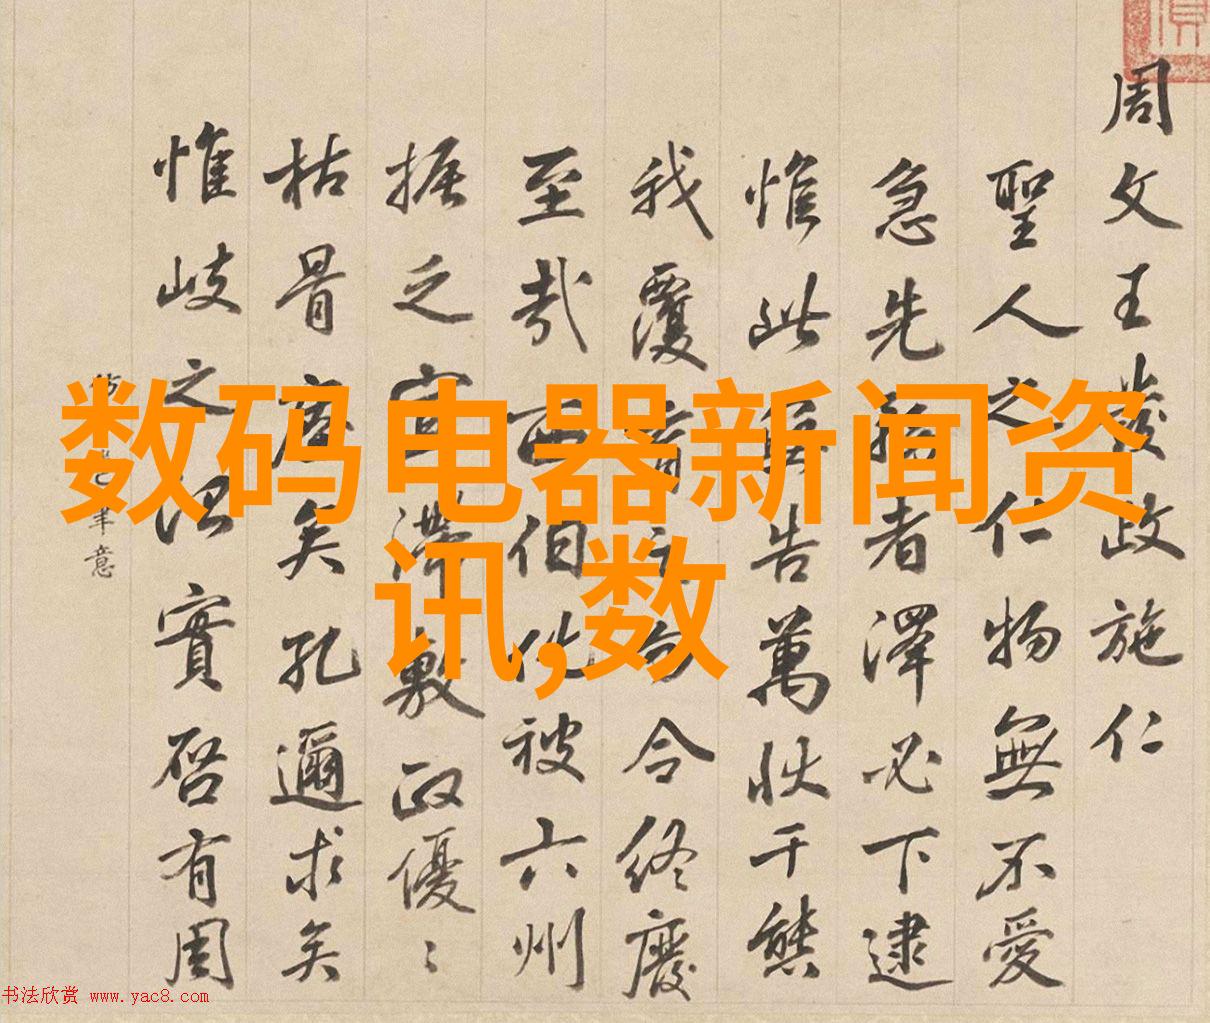 数码电器新闻资
讯,数
周文王發政施仁
聖人之仁物無不愛
急先者澤必下逮
惟此無告萬狀千態
我覆育之勿令終廢
至哉西伯化被六州
振之宣滯敷政優〻
枯骨矣孔邇求矣
惟岐之治實啓有周
筆意
书法欣赏 www.yac8.com